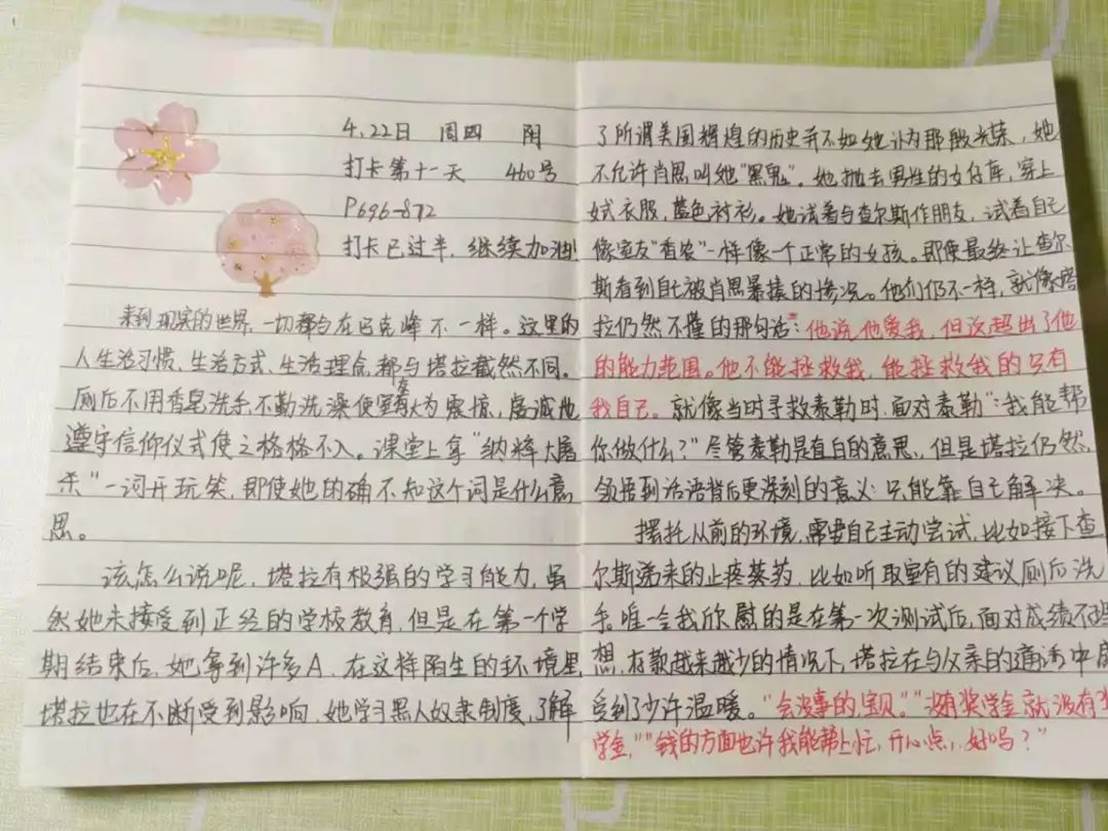 4.22日 周四 阴
打卡第十一天 460号
P696-872
打卡已过半，继续加油！
来到现实的世界，一切都与在巴克峰不一样。这里的
人生活习惯、生活方式、生活理念都与塔拉截然不同。
厕后不用香皂洗手不勤洗澡使室友大为震惊，虔诚地
遵守信仰仪式使之格格不入。课堂上拿“纳粹大屠
杀”一词开玩笑，即使她的确不知这个词是什么意
思。
该怎么说呢，塔拉有极强的学习能力，虽
然她未接受到正经的学校教育，但是在第一个学
期结束后，她拿到许多A，在这样陌生的环境里，
塔拉也在不断受到影响，她学习黑人奴隶制度，了解
了所谓美国辉煌的历史并不如她认为那般光荣，她
不允许肖恩叫她“黑鬼”。她抛去男性的女仔库，穿上
女式衣服，蓝色衬衫。她试着与查尔斯作朋友，试着自己
像室友“香农”一样像一个正常的女孩。即使最终让查尔
斯看到自己被肖恩暴揍的惨况。他们仍不一样，就像塔
拉仍然不懂的那句话：他说，他爱我，但这超出了他
的能力范围。他不能拯救我，能拯救我的只有
我自己。就像当时寻救泰勒时，面对泰勒“：我能帮
你做什么？”尽管泰勒是直白的意思，但是塔拉仍然
领悟到话语背后更深刻的意义：只能靠自己解决。
摆托从前的环境，需要自己主动尝试，比如接下查
尔斯递来的止疼药，比如听取室有的建议厕后洗
手唯一令我欣慰的是在第一次测试后，面对成绩不理
想，存款越来越少的情况下，塔拉在与父亲的通话中感
受到了少许温暖。“会没事的，宝贝。”“没有奖学金就没有奖
学金，”“钱的方面也许我能帮上忙，开心点，好吗？”